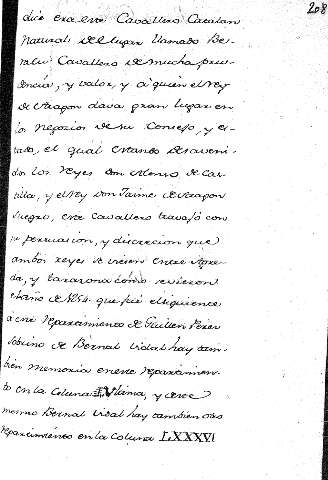 208
dice era este Cavallero Catalan
Natural del lugar llamado Be-
salu Cavallero de mucha pru-
dencia, y valor, y a quien el Rey
de Aragon dava gran lugar en
los negocios de su Consejo, y es-
tado, el qual estando desaveni-
dos los Reyes Don Alonso de Cas-
tilla, y el Rey Don Jaime de Aragon
suegro, este Cavallero travajó con
su persuacion, y discrecion que
ambos reyes se viesen entre Agre-
da, y tarazona como se vieron
el año de que fué el siguiente
a este repartimiento de Guillen Perez
sobrino de Bernal Vidal hay tam-
bien memoria en este repartimien-
to en la coluna y deese
mesmo Bernal Vidal hay tambien otro
repartimiento en la coluna LXXXVI